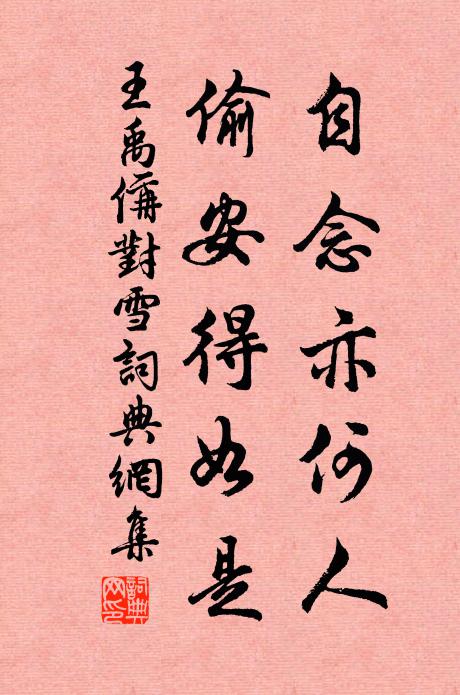 自念亦何人
偷安得如是
王禹偁對雪詞典網集
詞典网印